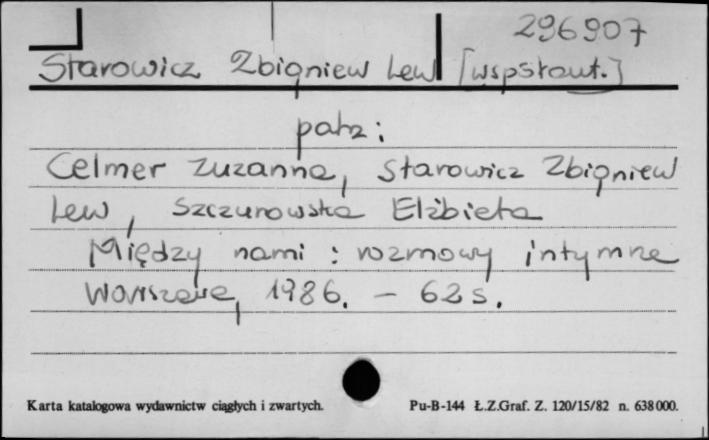 296907
Starowicz Zbigniew Lew [współaut.]
patrz:
Celmer Zuzanna, Starowicz Zbigniew
Lew, Szczurowska Elżbieta
Między nami : rozmowy intymne
Warszawa, 1986. – 62 s.
Karta katalogowa wydawnictw ciągłych i zwartych.
Pu-B-144 Ł.Z.Graf. Z. 120/15/82 n. 638 000.